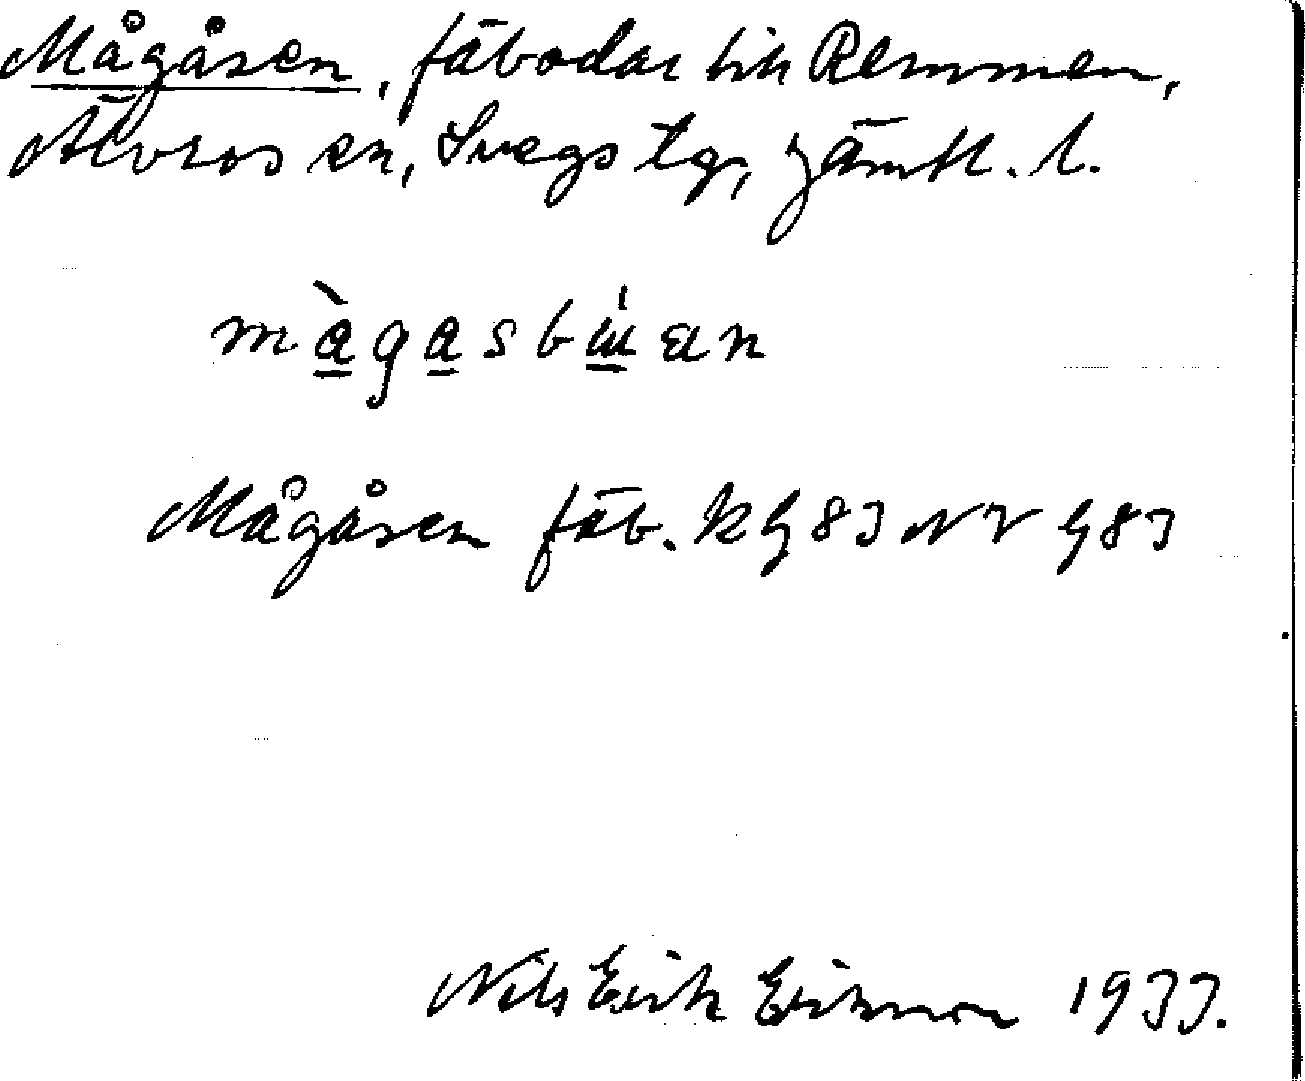 Mågåsen, fäbodar till Remmen,
Älvros sn, Svegs tg, Jämtl. l.
màgasbɯ́an
Mågåsen fäb. K G 83 NV G 83
Nils Erik Eriksson 1933.